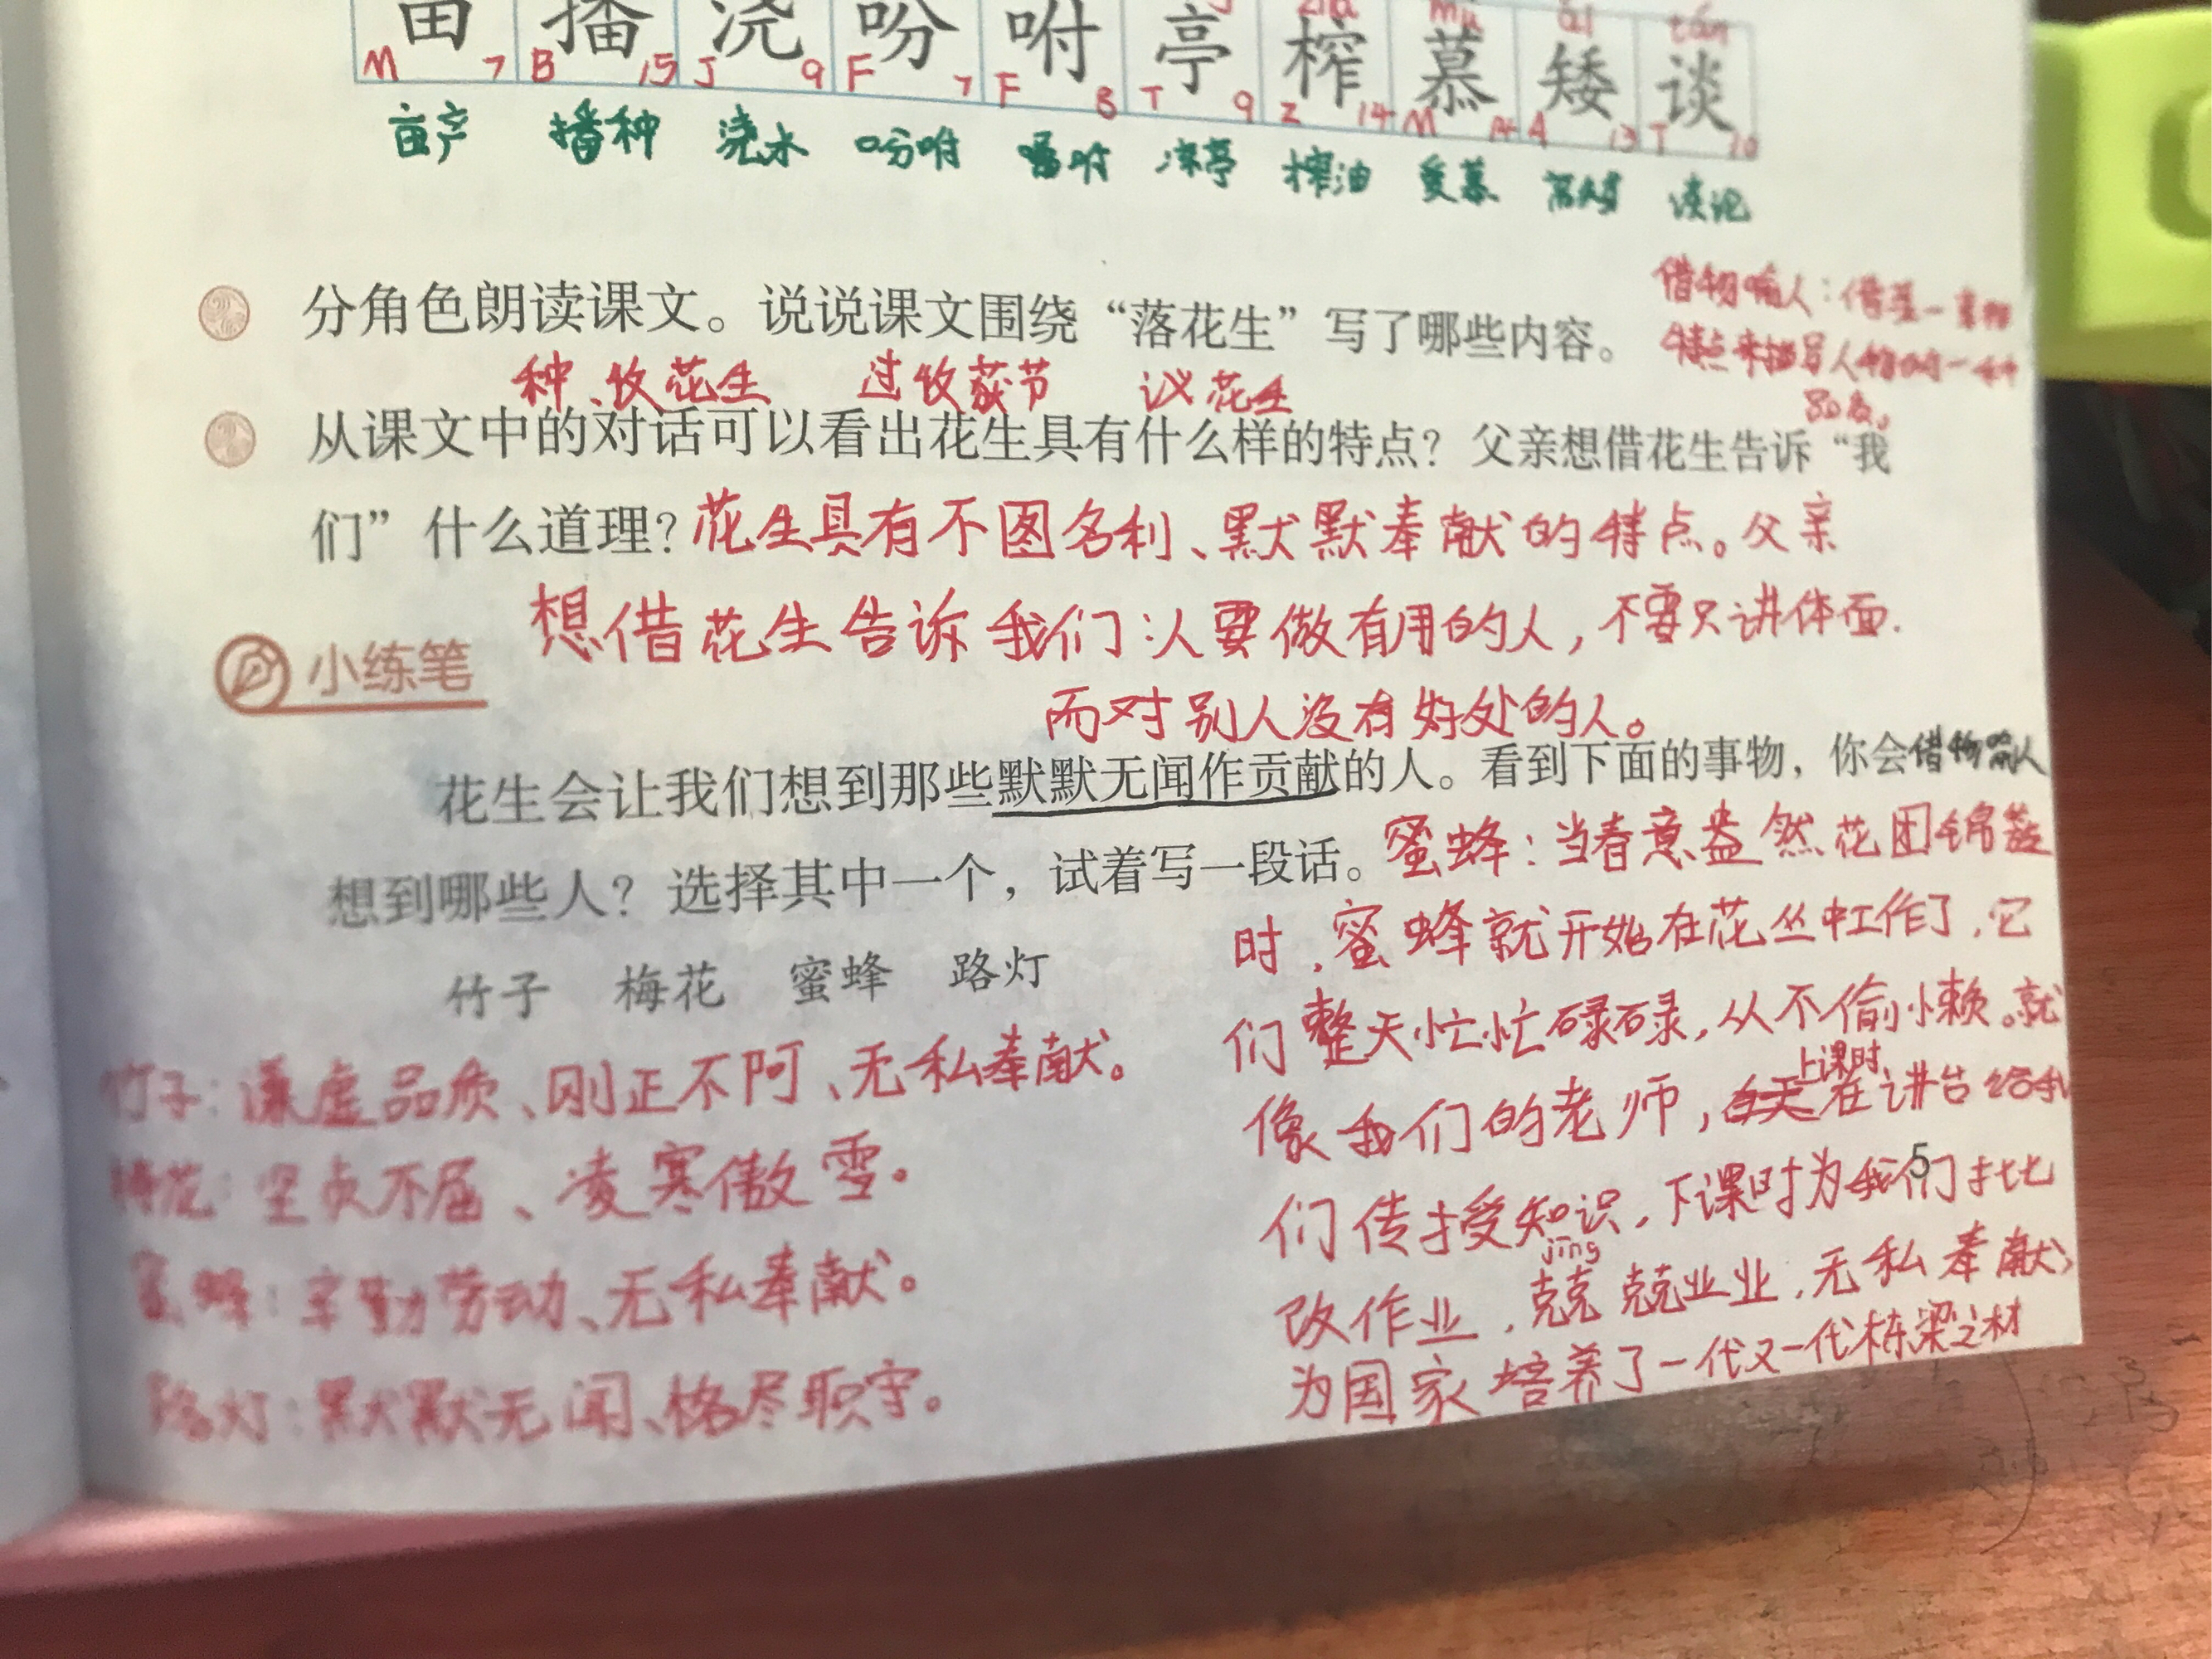 mù ǎi tán
亩 播 浇 吩 咐 亭 榨 慕 矮 谈
M 7 B 15 J 9 F 7 F 8 T 9 Z 14 M 14 A 13 T 10
亩产 播种 浇水 吩咐 嘱咐 凉亭 榨油 爱慕 高矮 谈论
借物喻人：借某一事物
特点来描写人物的一种
分角色朗读课文。说说课文围绕“落花生”写了哪些内容。
种、收花生 过收获节 议花生
从课文中的对话可以看出花生具有什么样的特点？父亲想借花生告诉“我
们”什么道理？花生具有不图名利、默默奉献的特点。父亲
想借花生告诉我们：人要做有用的人，不要只讲体面.
而对别人没有好处的人。
小练笔
花生会让我们想到那些默默无闻作贡献的人。看到下面的事物，你会借物喻人
想到哪些人？选择其中一个，试着写一段话。
竹子 梅花 蜜蜂 路灯
竹子：谦虚品质、刚正不阿、无私奉献。
梅花：坚贞不屈、凌寒傲雪。
蜜蜂：辛勤劳动、无私奉献。
路灯：默默无闻、恪尽职守。
蜜蜂：当春意盎然花团锦簇
时，蜜蜂就开始在花丛中工作了，它
们整天忙忙碌碌，从不偷小懒。就
上课时
像我们的老师，白天在讲台给我
们传授知识，下课时为我们批
jīng
改作业，兢兢业业，无私奉献，
为国家培养了一代又一代栋梁之材
5